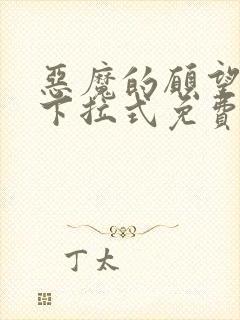 惡魔的願望
下拉式免費
丁太